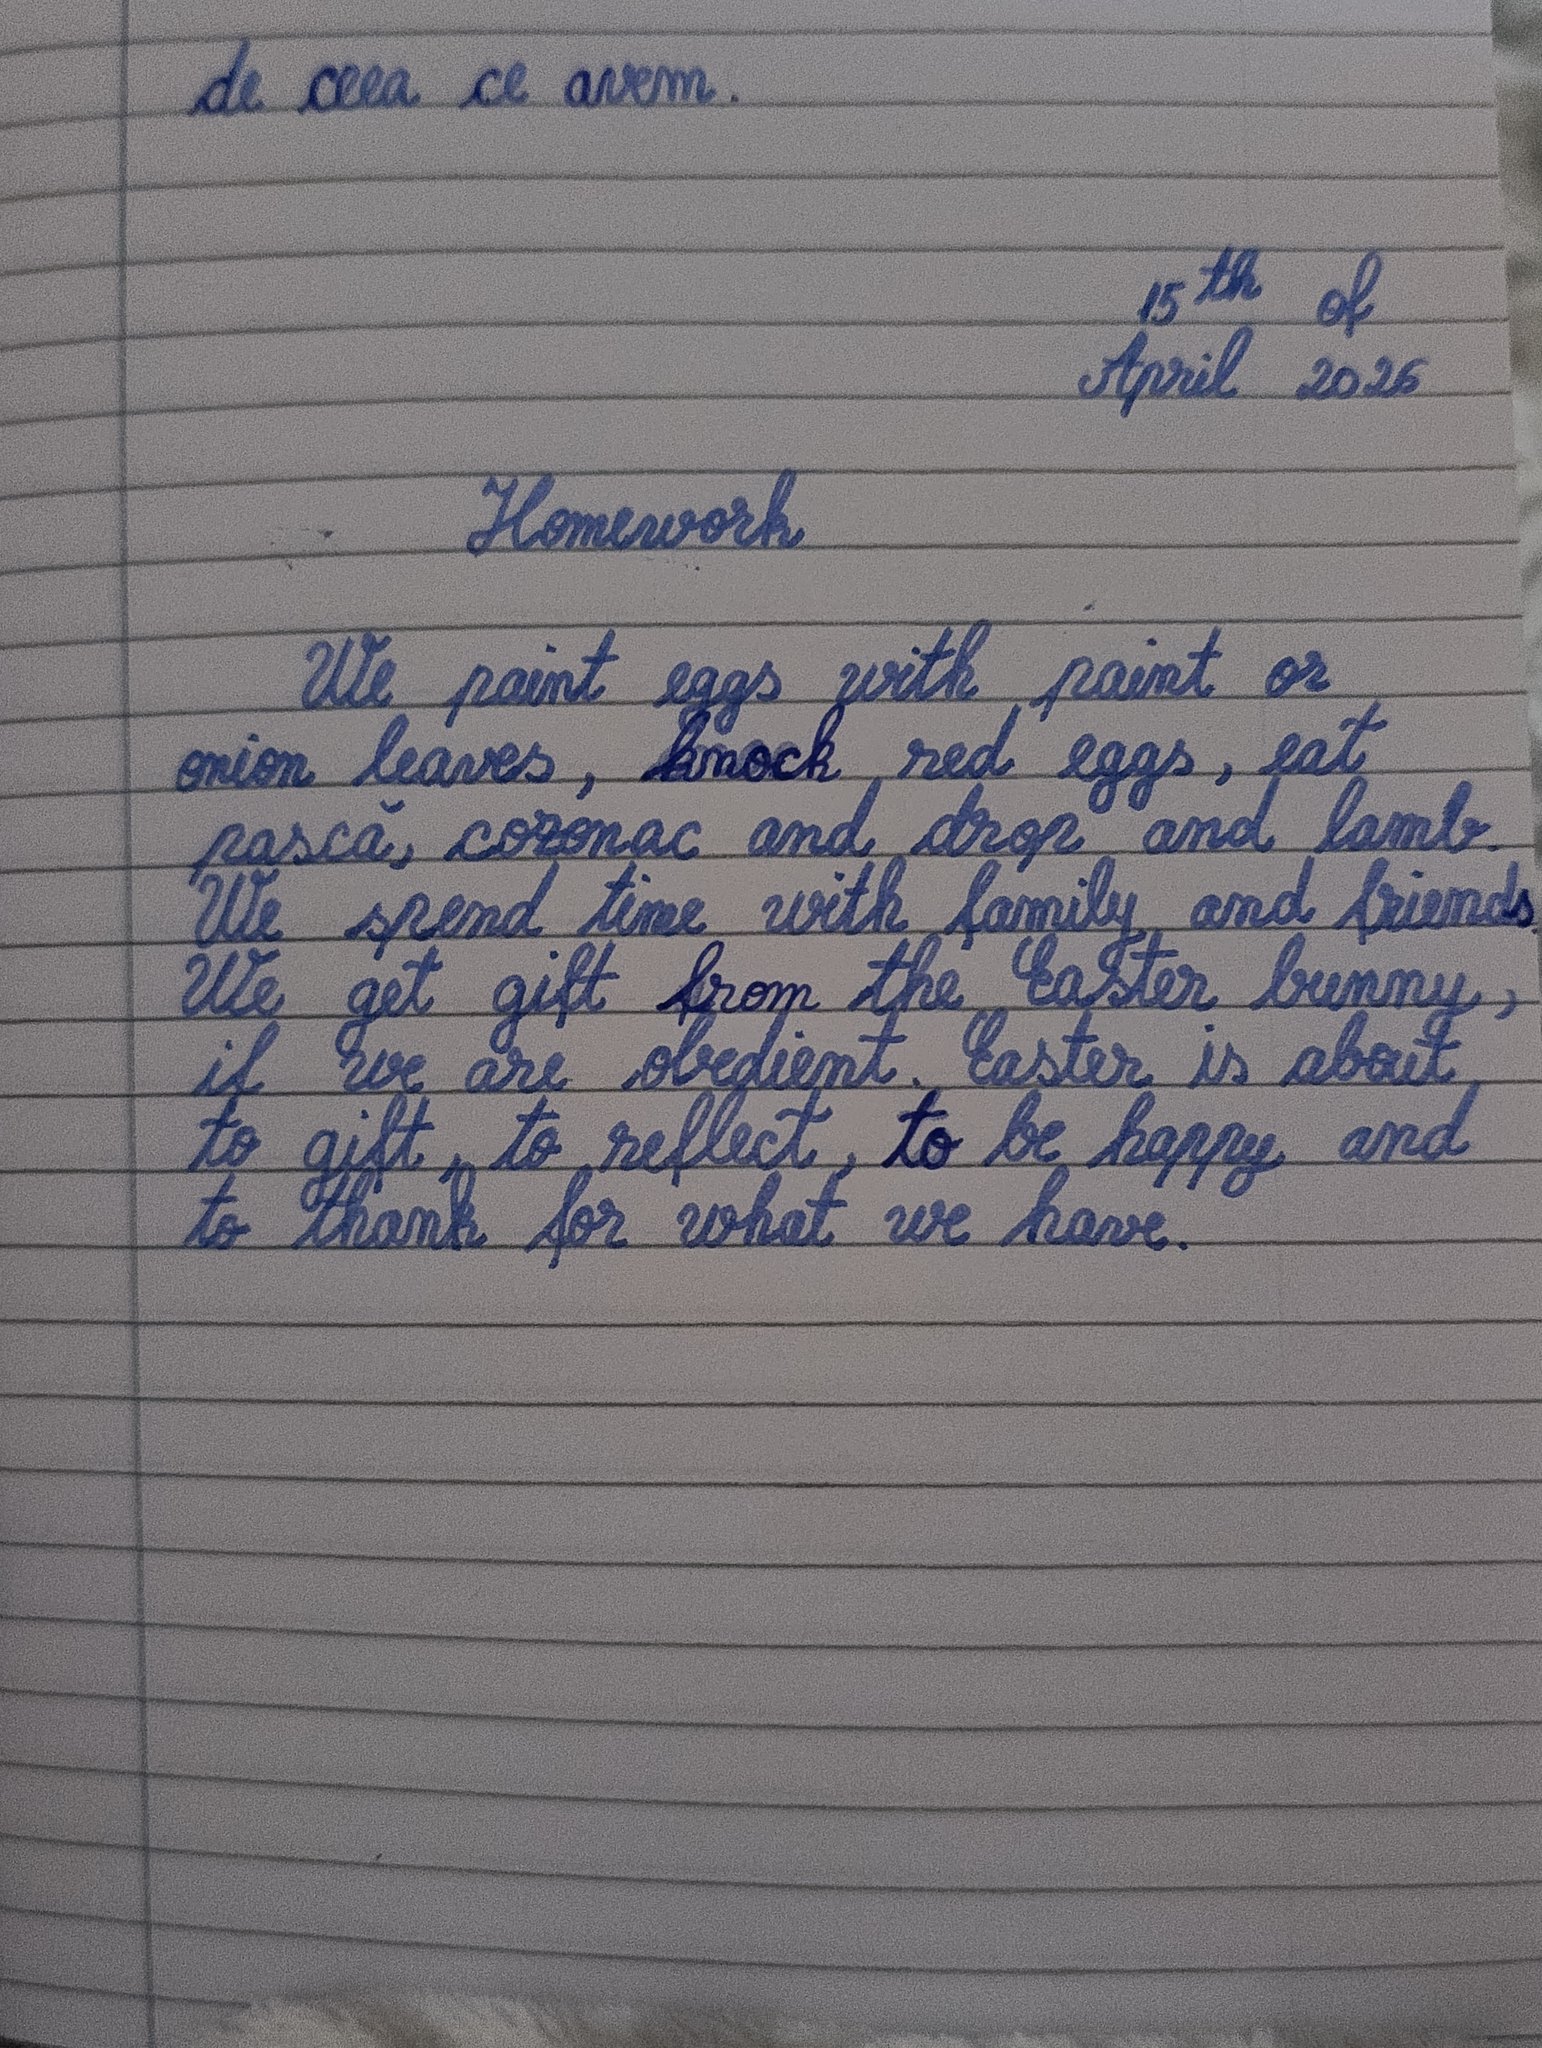 de ceea ce avem.
15th of
April 2026
Homework
We paint eggs with paint or
onion leaves, knock red eggs, eat
pască, cozonac and drop and lamb.
We spend time with family and friends.
We get gift from the Easter bunny,
if we are obedient. Easter is about
to gift, to reflect, to be happy and
to thank for what we have.